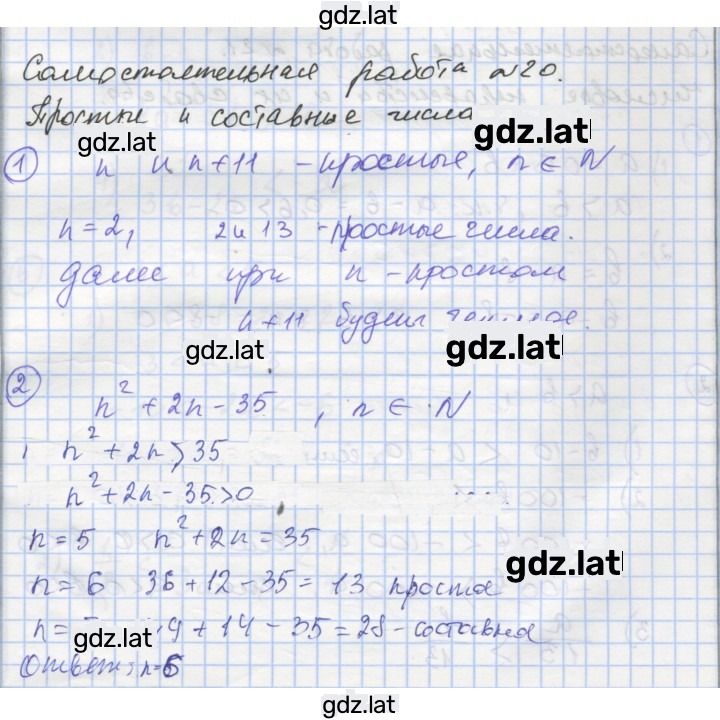 gdz.lat
Самостоятельная работа №20.
Простые и составные числа
gdz.lat
gdz.lat
1) n и n+11 - простые, n ∈ N
n=2, 2 и 13 - простые числа.
далее при n - простом
n+11 будет
gdz.lat
gdz.lat
2) n² + 2n - 35, n ∈ N
n² + 2n > 35
n² + 2n - 35 > 0
n = 5 n² + 2n = 35
gdz.lat
n = 6 36 + 12 - 35 = 13 простое
n = + 14 - 35 = 28 - составная
gdz.lat
Ответ: n=6
gdz.lat